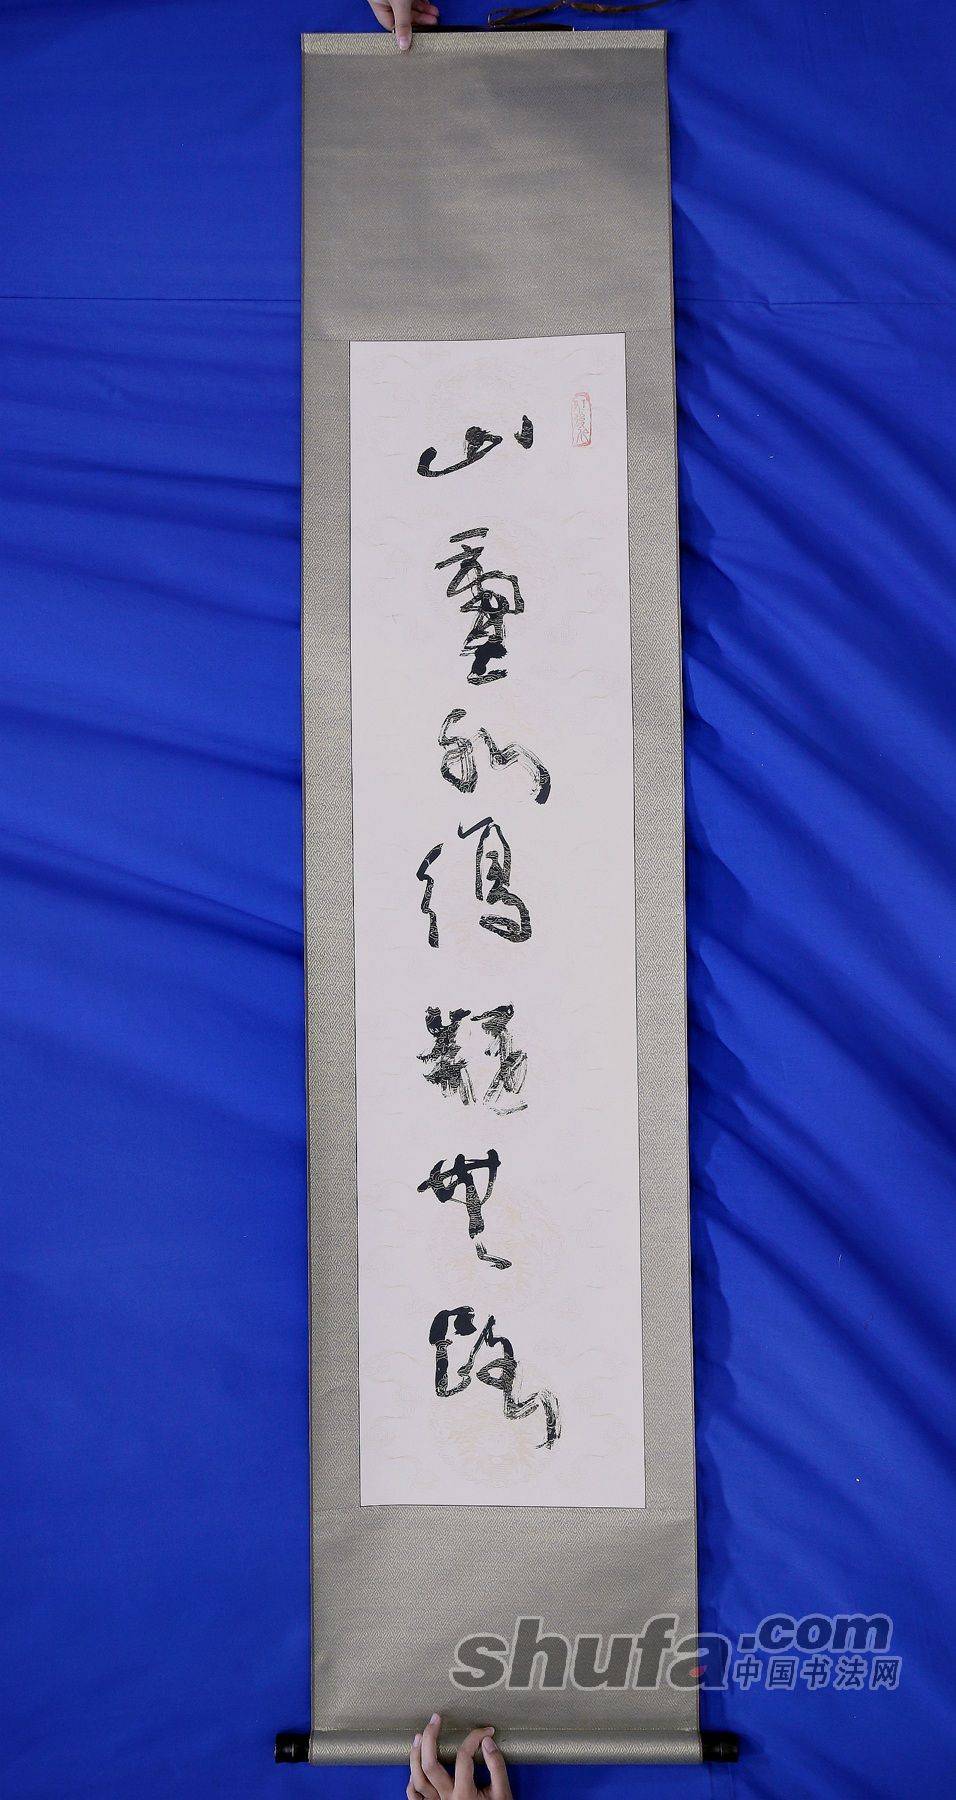 山重水復疑無路
shufa.com
中国书法网